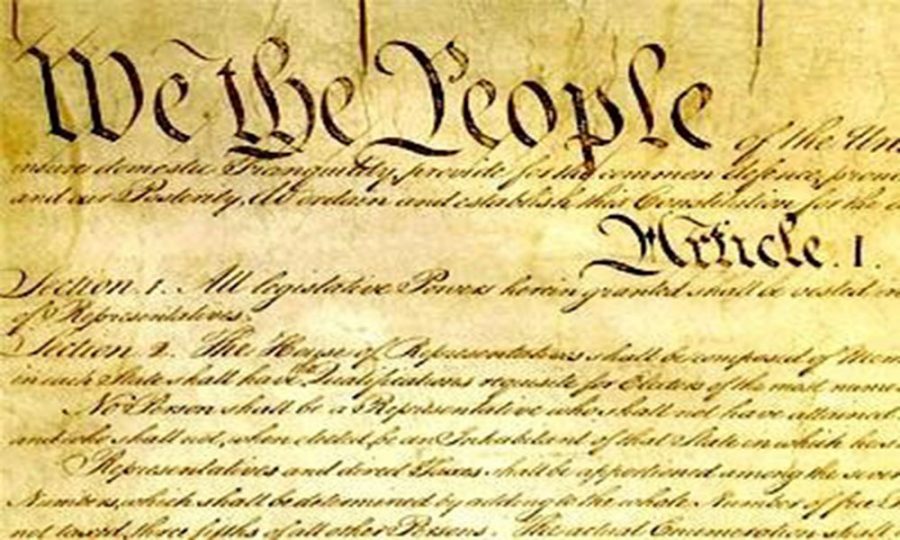 We the People of the Un
insure domestic Tranquility, provide for the common defence, prom
and our Posterity, do ordain and establish this Constitution for the
Article. I.
Section. 1. All legislative Powers herein granted shall be vested in
of Representatives.
Section. 2. The House of Representatives shall be composed of Mem
in each State shall have Qualifications requisite for Electors of the most nume
No Person shall be a Representative who shall not have attained
and who shall not, when elected, be an Inhabitant of that State in which he s
Representatives and direct Taxes shall be apportioned among the sever
Numbers, which shall be determined by adding to the whole Number of free
not taxed, three fifths of all other Persons. The actual Enumeration shall